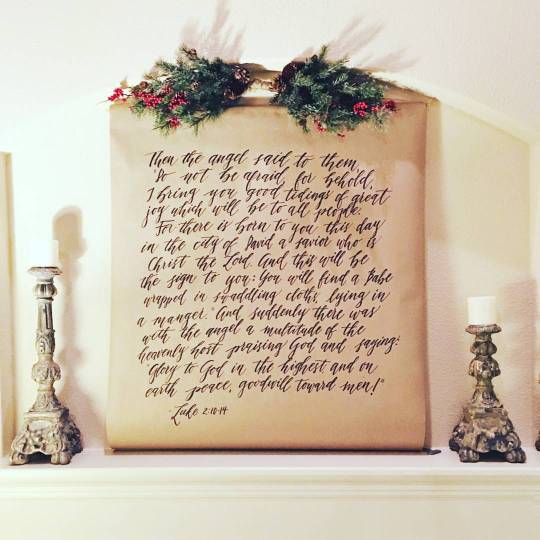 Then the angel said to them,
"Do not be afraid, for behold,
I bring you good tidings of great
joy which will be to all people.
For there is born to you this day
in the city of David a savior who is
Christ the Lord. And this will be
the sign to you: You will find a Babe
wrapped in swaddling cloths, lying in
a manger." And suddenly there was
with the angel a multitude of the
heavenly host praising God and saying:
"Glory to God in the highest, and on
earth peace, goodwill toward men!"
- Luke 2:10-14